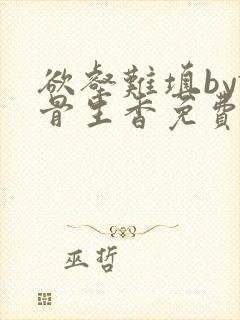 欲壑難填by
骨里香免費
巫哲